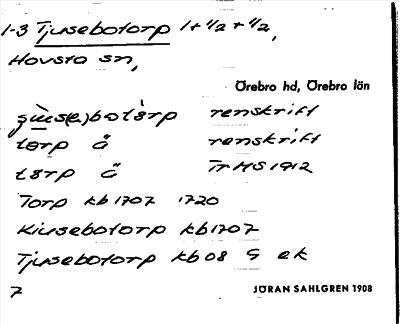 1-3 Tjusebotorp 1+1/2+1/2,
Hovsta sn,
Örebro hd, Örebro län
renskrift
torp å renskrift
tärp ä Tr MS 1912
Torp kb 1707 1720
Kiusebotorp kb 1707
Tjusebotorp kb 08 G ek
7 JÖRAN SAHLGREN 1908